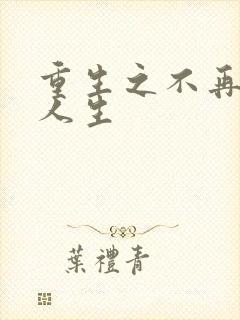 重生之不再
人生
葉禮青